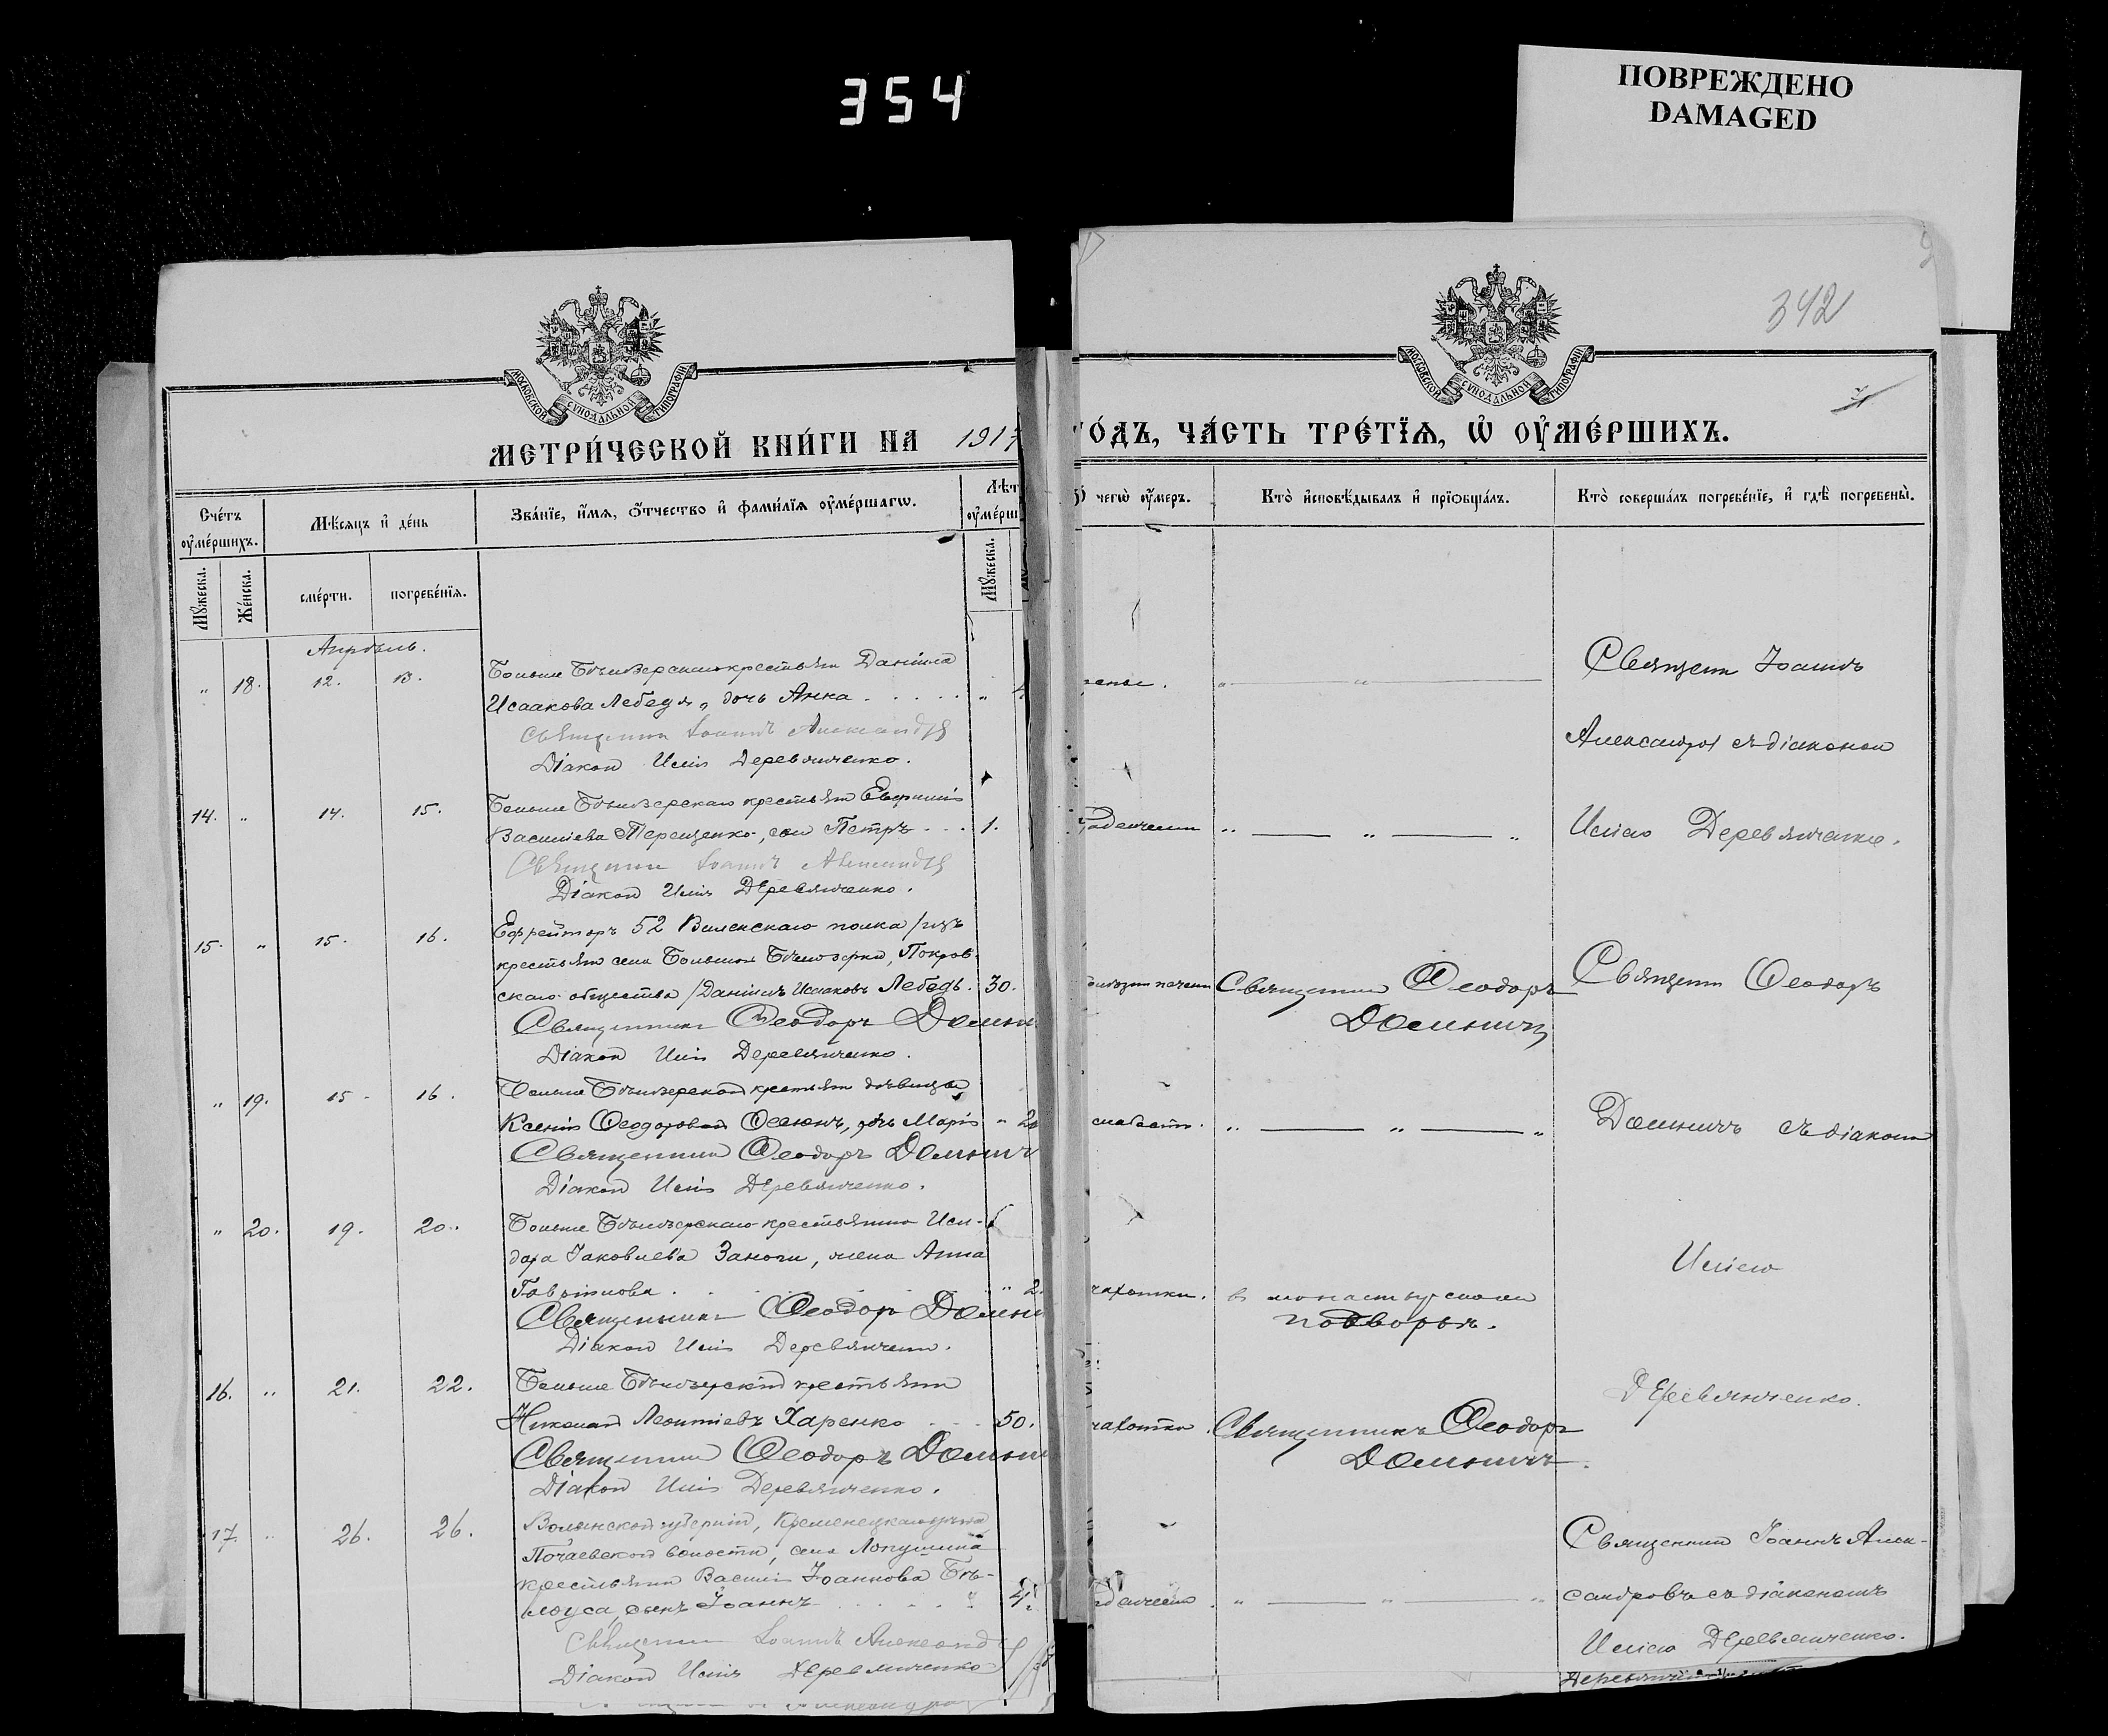 354
ПОВРЕЖДЕНО
DAMAGED
342
МОСКОВСКОЙ СѴНОДАЛЬНОЙ ТИПОГРАФІИ
МОСКОВСКОЙ СѴНОДАЛЬНОЙ ТИПОГРАФІИ
МЕТРИ́ЧЕСКОЙ КНИ́ГИ НА 1917
О́ДЪ, ЧА́СТЬ ТРЕ́ТЇѦ, Ѡ҆ ОУ҆МЕ́РШИХЪ.
Сче́тъ оу҆ме́ршихъ.
Мꙋ́жеска.
Же́нска.
Мѣ́сѧцъ и҆ де́нь
сме́рти.
погребе́нїѧ.
Зва́нїе, и҆́мѧ, ѻ҆́тчество и҆ фами́лїѧ оу҆ме́ршагѡ.
Лѣт
оу҆ме́рш
Мꙋ́жеска.
чегѡ̀ оу҆́меръ.
Кто̀ и҆сповѣ́дывалъ и҆ прїѡбща́лъ.
Кто̀ соверша́лъ погребе́нїе, и҆ гдѣ̀ погребены̀.
Апрѣль.
" 18. 12. 13.
Больше Бѣлозерскаго крестьян Даніила
Исаакова Лебедя, дочь Анна . . . . . "
Священник Іоаннъ Александр
Діакон Илія Деревянченко.
Священ Іоаннъ
Александров съ діаконом
14. " 14. 15.
Больше Бѣлозерскаго крестьян Евфимія
Василіева Терещенко, сын Петръ . . . 1.
Священник Іоаннъ Александр
Діакон Илія Деревянченко.
Иліею Деревянченко.
15. " 15. 16.
Ефрейторъ 52 Виленскаго полка /изъ
крестьян села Большой Бѣлозерки, Покров-
скаго общества / Даніилъ Исааковъ Лебедь. 30.
Священникъ Ѳеодоръ Домни
Діакон Илія Деревянченко.
Священник Ѳеодоръ
Священ Ѳеодоръ
" 19. 15. 16.
Больше Бѣлозерской крестьян дѣвицы
Ксеніи Ѳеодоровой , дочь Марія "
Священник Ѳеодоръ
Діакон Илія Деревянченко.
слабост.
съ діакон
" 20. 19. 20.
Больше Бѣлозерскаго крестьянина Иси-
дора Іаковлева Заноги, жена Анна
Гавріилова . . . . . " 2
Священникъ Ѳеодор
Діакон Илія Деревянчен.
чахотки.
в монастырском
подворьѣ.
Иліею
16. " 21. 22.
Больше Бѣлозерскій крестьянин
Николай Леонтіевъ Харенко . . . 50.
Священник Ѳеодоръ
Діакон Илія Деревянченко.
чахотки.
Священникъ Ѳеодоръ
Деревянченко.
17. " 26. 26.
Волынской губерніи, Кременецкаго уѣзда
Почаевской волости, села Лопушна
крестьянин Василія Іоаннова Бѣ-
лоуса, сынъ Іоаннъ . . . . .
Священник Іоаннъ Александр
Діакон Илія Деревянченко
Священник Іоаннъ Алек-
сандровъ съ діакономъ
Иліею Деревянченко.